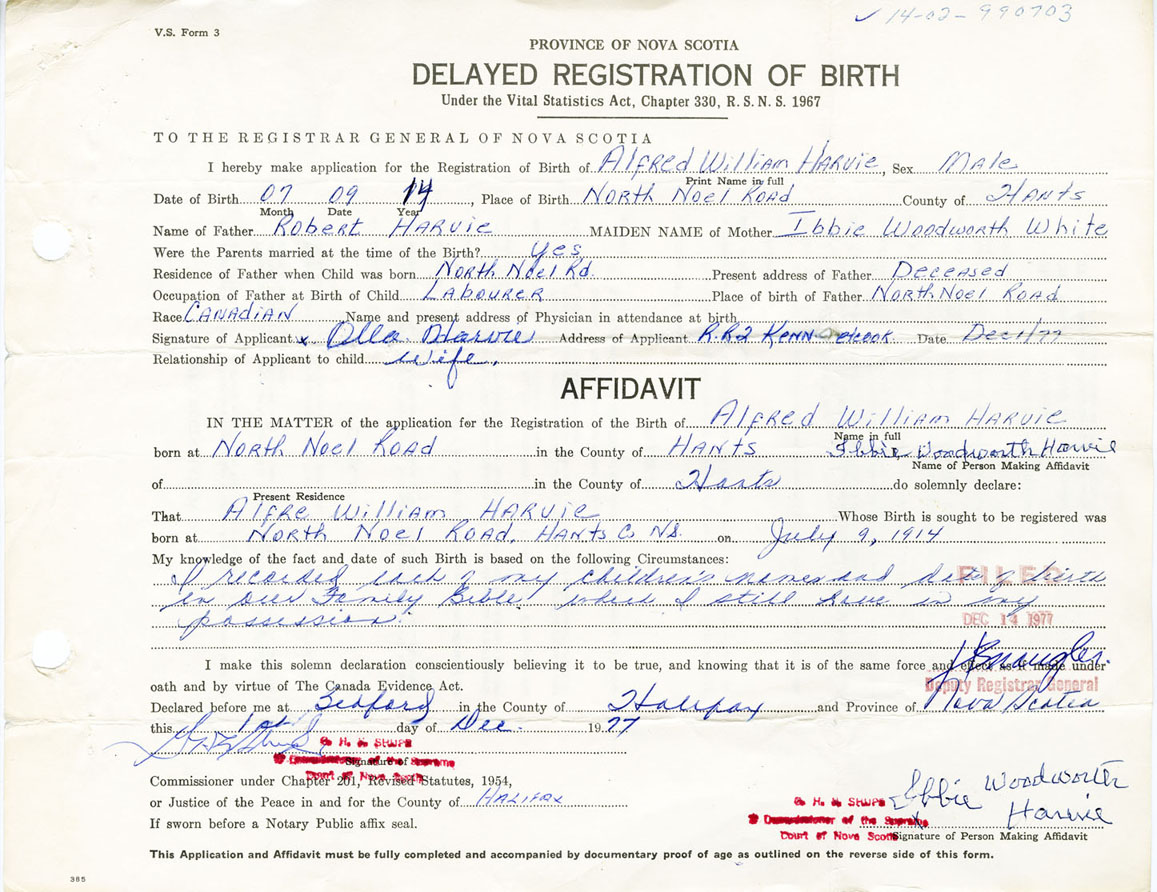 ✓ 14-02-990703
V.S. Form 3
PROVINCE OF NOVA SCOTIA
DELAYED REGISTRATION OF BIRTH
Under the Vital Statistics Act, Chapter 330, R. S. N. S. 1967
TO THE REGISTRAR GENERAL OF NOVA SCOTIA
I hereby make application for the Registration of Birth of Alfred William Harvie, Sex Male
Print Name in full
Date of Birth 07 09 14, Place of Birth North Noel Road County of Hants
Month Date Year
Name of Father Robert Harvie MAIDEN NAME of Mother Ibbie Woodworth White
Were the Parents married at the time of the Birth? yes
Residence of Father when Child was born North Noel Rd. Present address of Father Deceased
Occupation of Father at Birth of Child Labourer Place of birth of Father North Noel Road
Race Canadian Name and present address of Physician in attendance at birth
Signature of Applicant x Olla Harvie Address of Applicant R.R2 Kennetcook Date Dec 1/77
Relationship of Applicant to child wife.
AFFIDAVIT
IN THE MATTER of the application for the Registration of the Birth of Alfred William Harvie
Name in full
born at North Noel Road in the County of Hants Ibbie Woodworth Harvie
Name of Person Making Affidavit
of in the County of Hants do solemnly declare:
Present Residence
That Alfre William Harvie Whose Birth is sought to be registered was
born at North Noel Road, Hants Co NS. on July 9, 1914
My knowledge of the fact and date of such Birth is based on the following Circumstances:
I recorded each of my children's names and date of birth
in our Family Bible which I still have in my
possession.
FILED
DEC 14 1977
I make this solemn declaration conscientiously believing it to be true, and knowing that it is of the same force and effect as if made under
Deputy Registrar General
oath and by virtue of The Canada Evidence Act.
Declared before me at in the County of Halifax and Province of Nova Scotia
this 1st day of Dec. 1977
Signature of
Court of Nova Scotia
Commissioner under Chapter 201, Revised Statutes, 1954,
or Justice of the Peace in and for the County of Halifax
If sworn before a Notary Public affix seal.
Ibbie Woodworth
Harvie
Court of Nova Scotia
Signature of Person Making Affidavit
This Application and Affidavit must be fully completed and accompanied by documentary proof of age as outlined on the reverse side of this form.
385